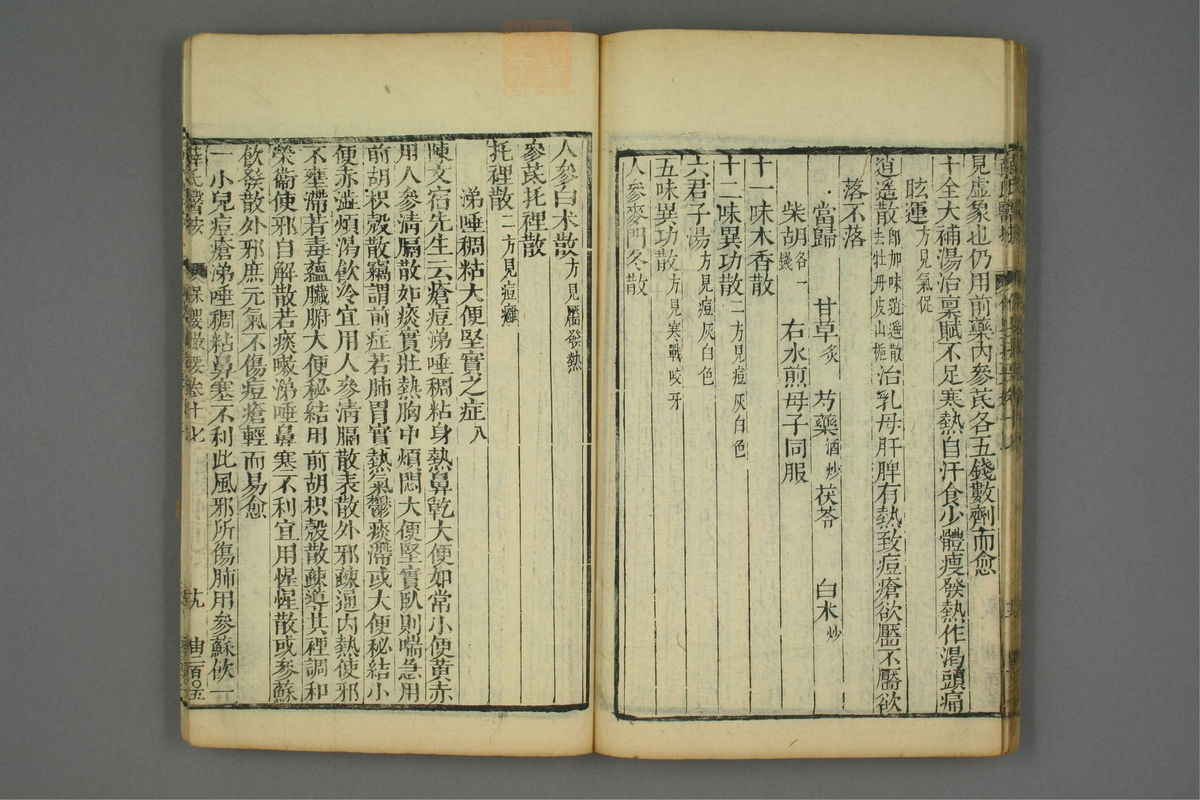 見虛象也仍用前藥內參芪各五錢數劑而愈
十全大補湯治稟賦不足寒熱自汗食少體瘦發熱作渴頭痛
眩運方見氣促
逍遙散即加味逍遙散去牡丹皮山梔治乳母肝脾有熱致痘瘡欲靨不靨欲
落不落
當歸 甘草炙 芍藥酒炒 茯苓 白朮炒
柴胡各一錢 右水煎母子同服
十一味木香散
十二味異功散二方見痘灰白色
六君子湯方見痘灰白色
五味異功散方見寒戰咬牙
人參麥門冬散
人參白朮散方見靨發熱
參芪托裡散
托裡散二方見痘癰
涕唾稠粘大便堅實之症八
陳文宿先生云瘡痘涕唾稠粘身熱鼻乾大便如常小便黃赤
用人參清膈散如痰實壯熱胸中煩悶大便堅實臥則喘急用
前胡枳殼散竊謂前症若肺胃實熱氣鬱痰滯或大便秘結小
便赤澁煩渴飲冷宜用人參清膈散表散外邪疎通內熱使邪
不壅滯若毒蘊臟腑大便秘結用前胡枳殼散疎導其裡調和
榮衞使邪自解散若痰嗽涕唾鼻寒不利宜用惺惺散或參蘇
飲發散外邪庶元氣不傷痘瘡輕而易愈
一小兒痘瘡涕唾稠粘鼻塞不利此風邪所傷肺用參蘇飲一
薛氏醫按 保嬰撮要卷十七 十九 由二百〇五